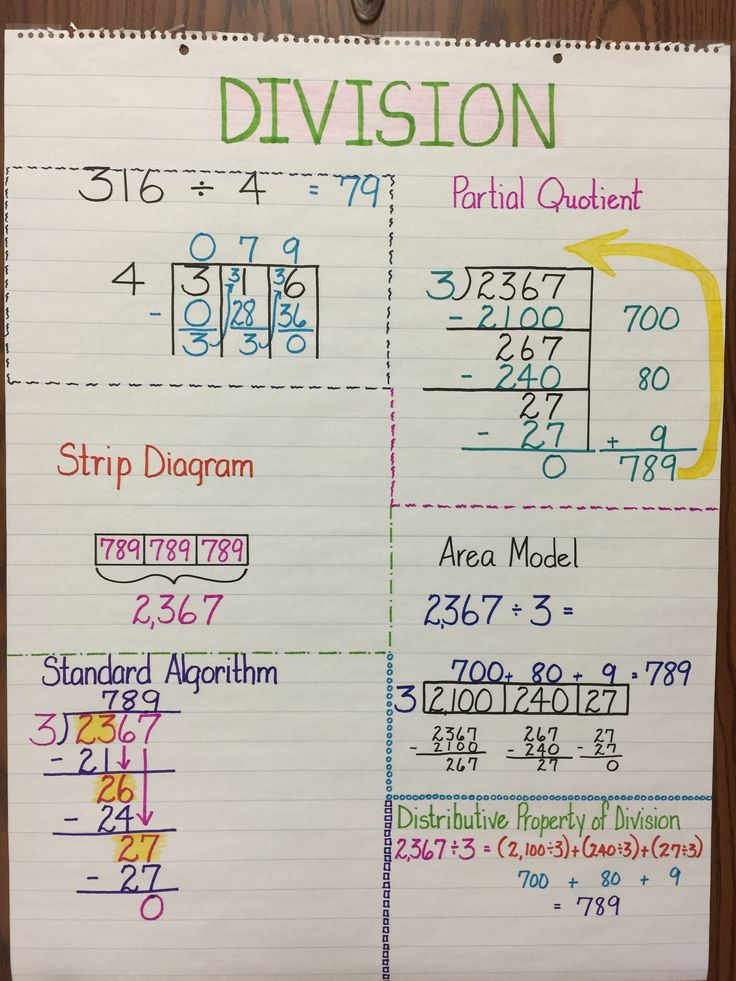 DIVISION
316 ÷ 4 = 79
0 7 9
4 3 31 36
- 0 28 36
3 3 0
Partial Quotient
3)2367
- 2100 700
267
- 240 80
27
- 27 + 9
0 789
Strip Diagram
789 789 789
2,367
Area Model
2,367 ÷ 3 =
700 + 80 + 9 = 789
3 2,100 240 27
2367 267 27
- 2100 - 240 - 27
267 27 0
Standard Algorithm
789
3)2367
- 21
26
- 24
27
- 27
0
Distributive Property of Division
2,367÷3 = (2,100÷3)+(240÷3)+(27÷3)
700 + 80 + 9
= 789